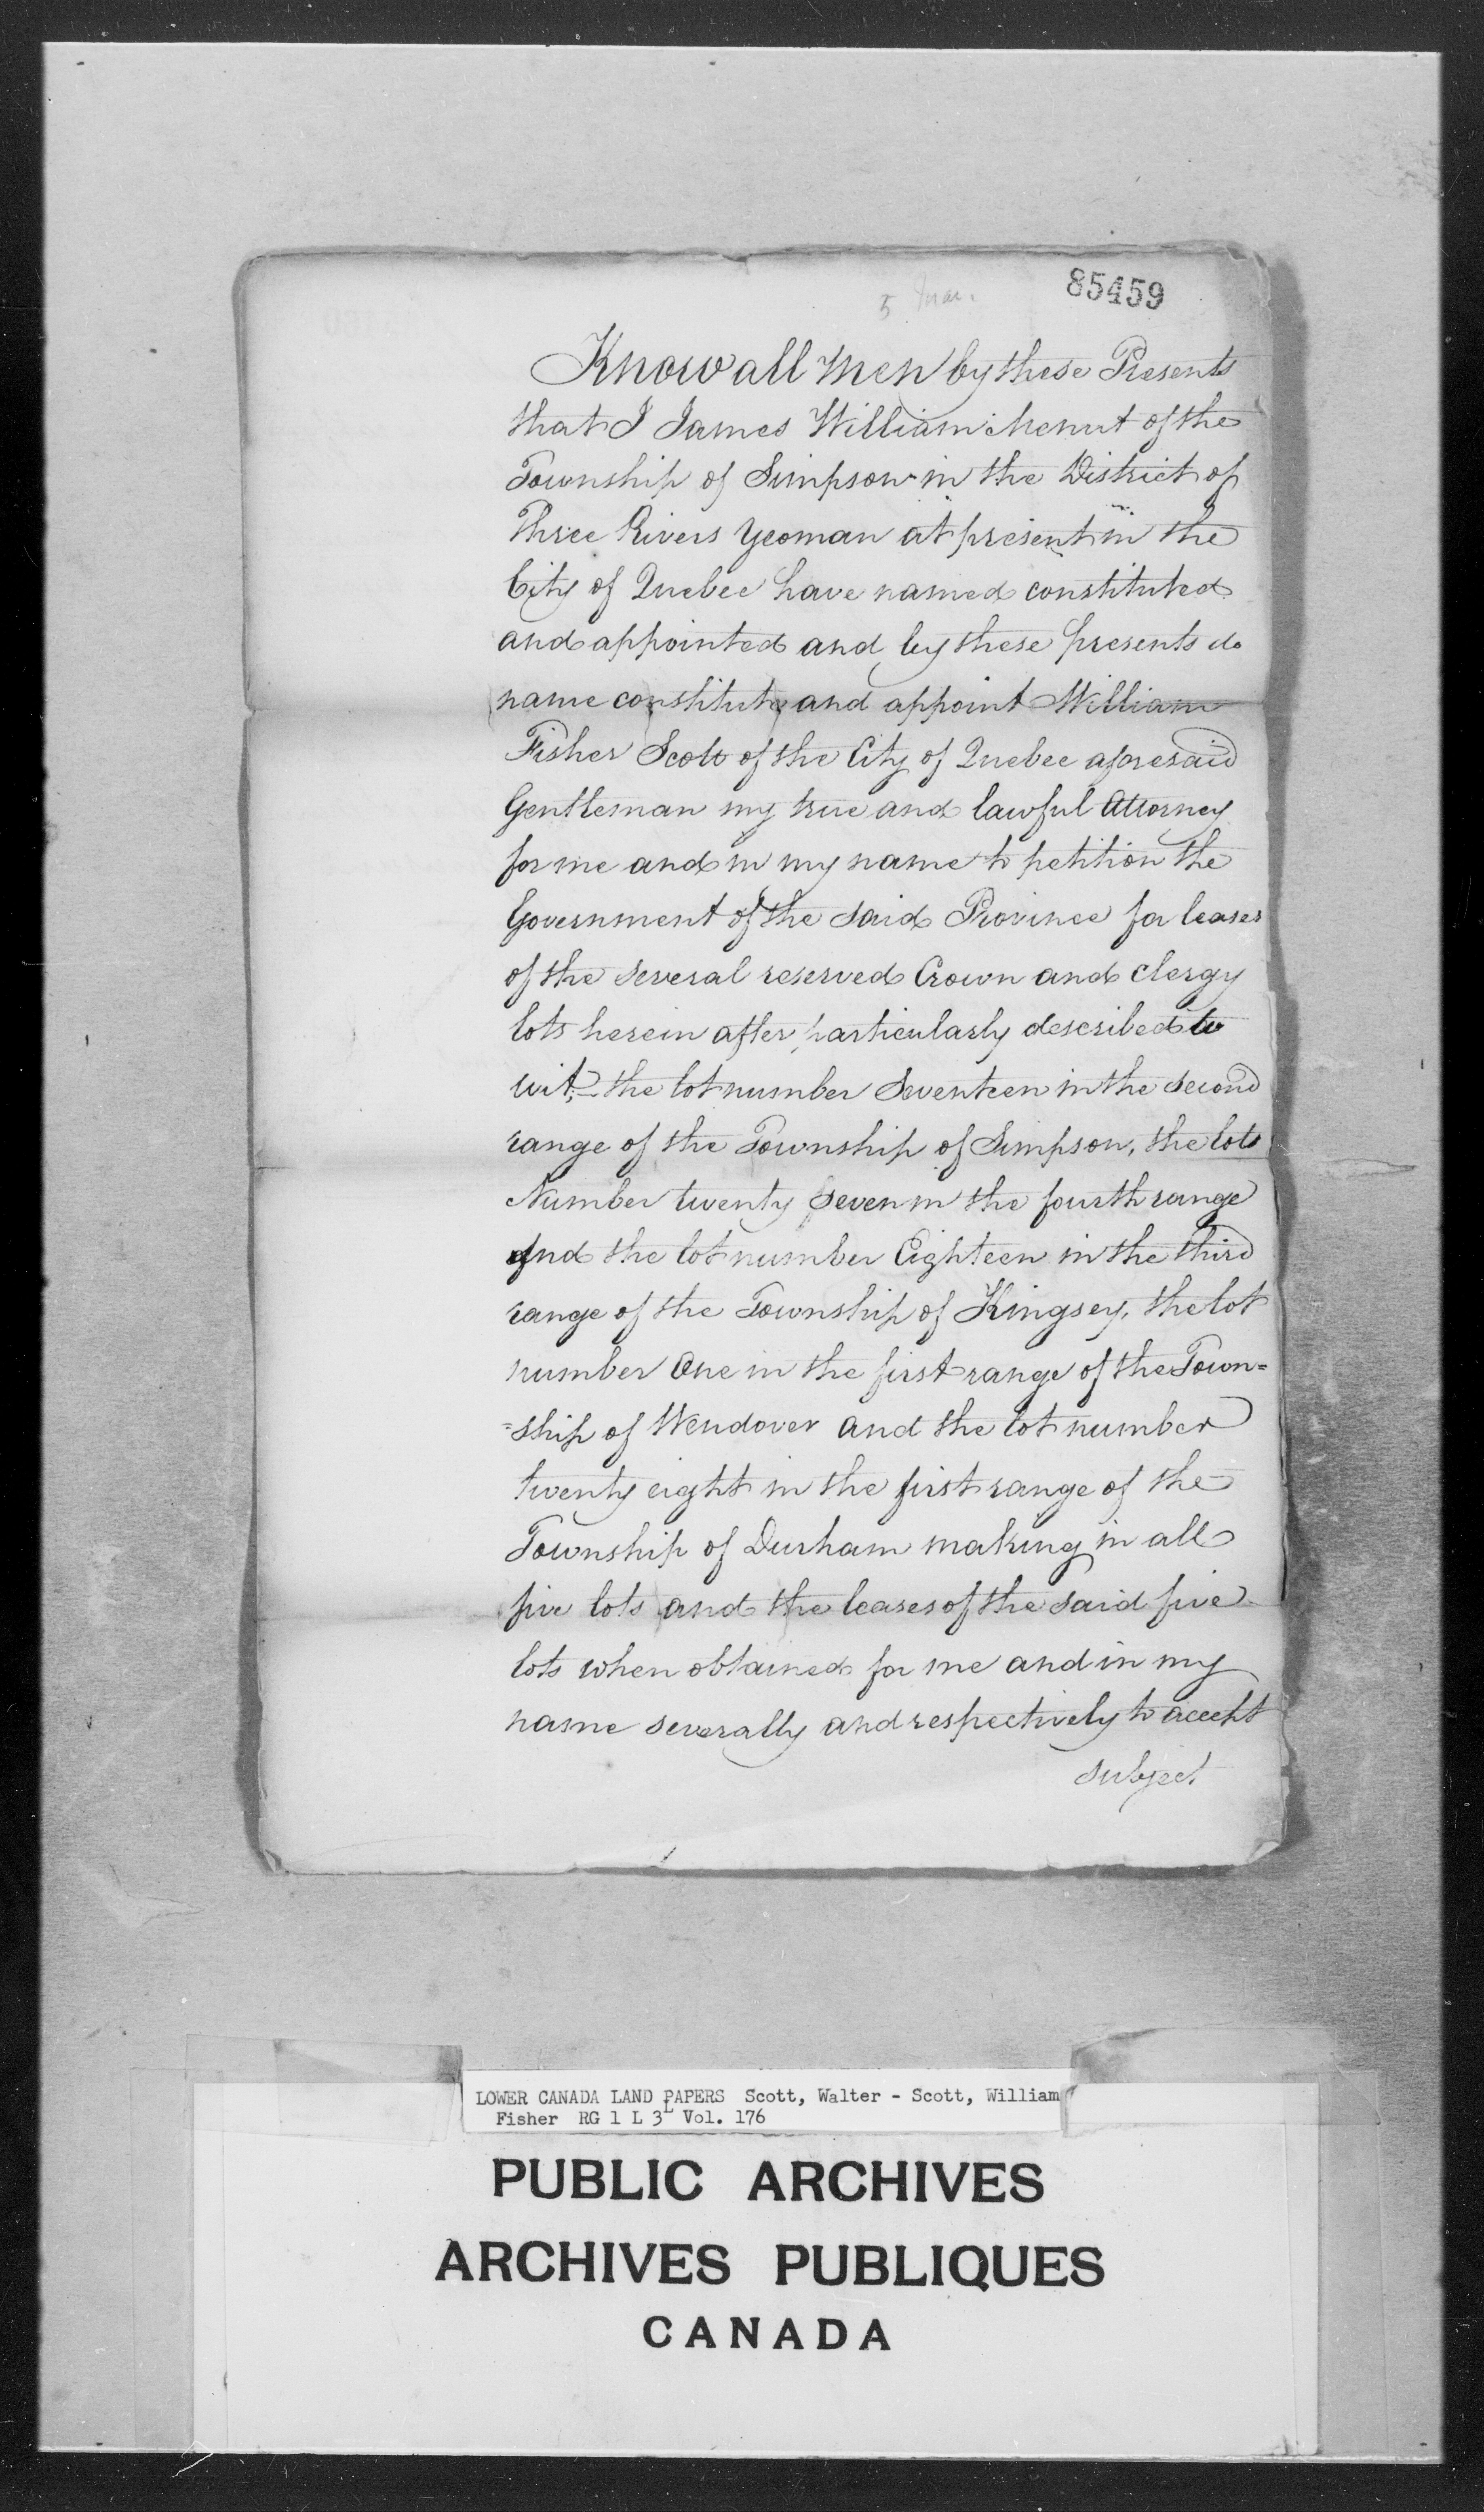 85459
5 Mar.
Know all Men by these Presents
that I James William Menut of the
Township of Simpson in the District of
Three Rivers Yeoman at present in the
City of Quebec have named constituted
and appointed and by these presents do
name constitute and appoint William
Fisher Scott of the City of Quebec aforesaid
Gentleman my true and lawful Attorney
for me and in my name to petition the
Government of the said Province for leases
of the several reserved Crown and Clergy
lots herein after particularly described to
wit;- the lot number Seventeen in the second
range of the Township of Simpson, the lots
Number twenty seven in the fourth range
And the lot number Eighteen in the third
range of the Township of Kingsey, the lot
number One in the first range of the Town=
=ship of Wendover and the lot number
twenty eight in the first range of the
Township of Durham making in all
five lots and the leases of the said five
lots when obtained for me and in my
name severally and respectively to accept
subject
LOWER CANADA LAND PAPERS Scott, Walter - Scott, William
Fisher RG 1 L 3L Vol. 176
PUBLIC ARCHIVES
ARCHIVES PUBLIQUES
CANADA